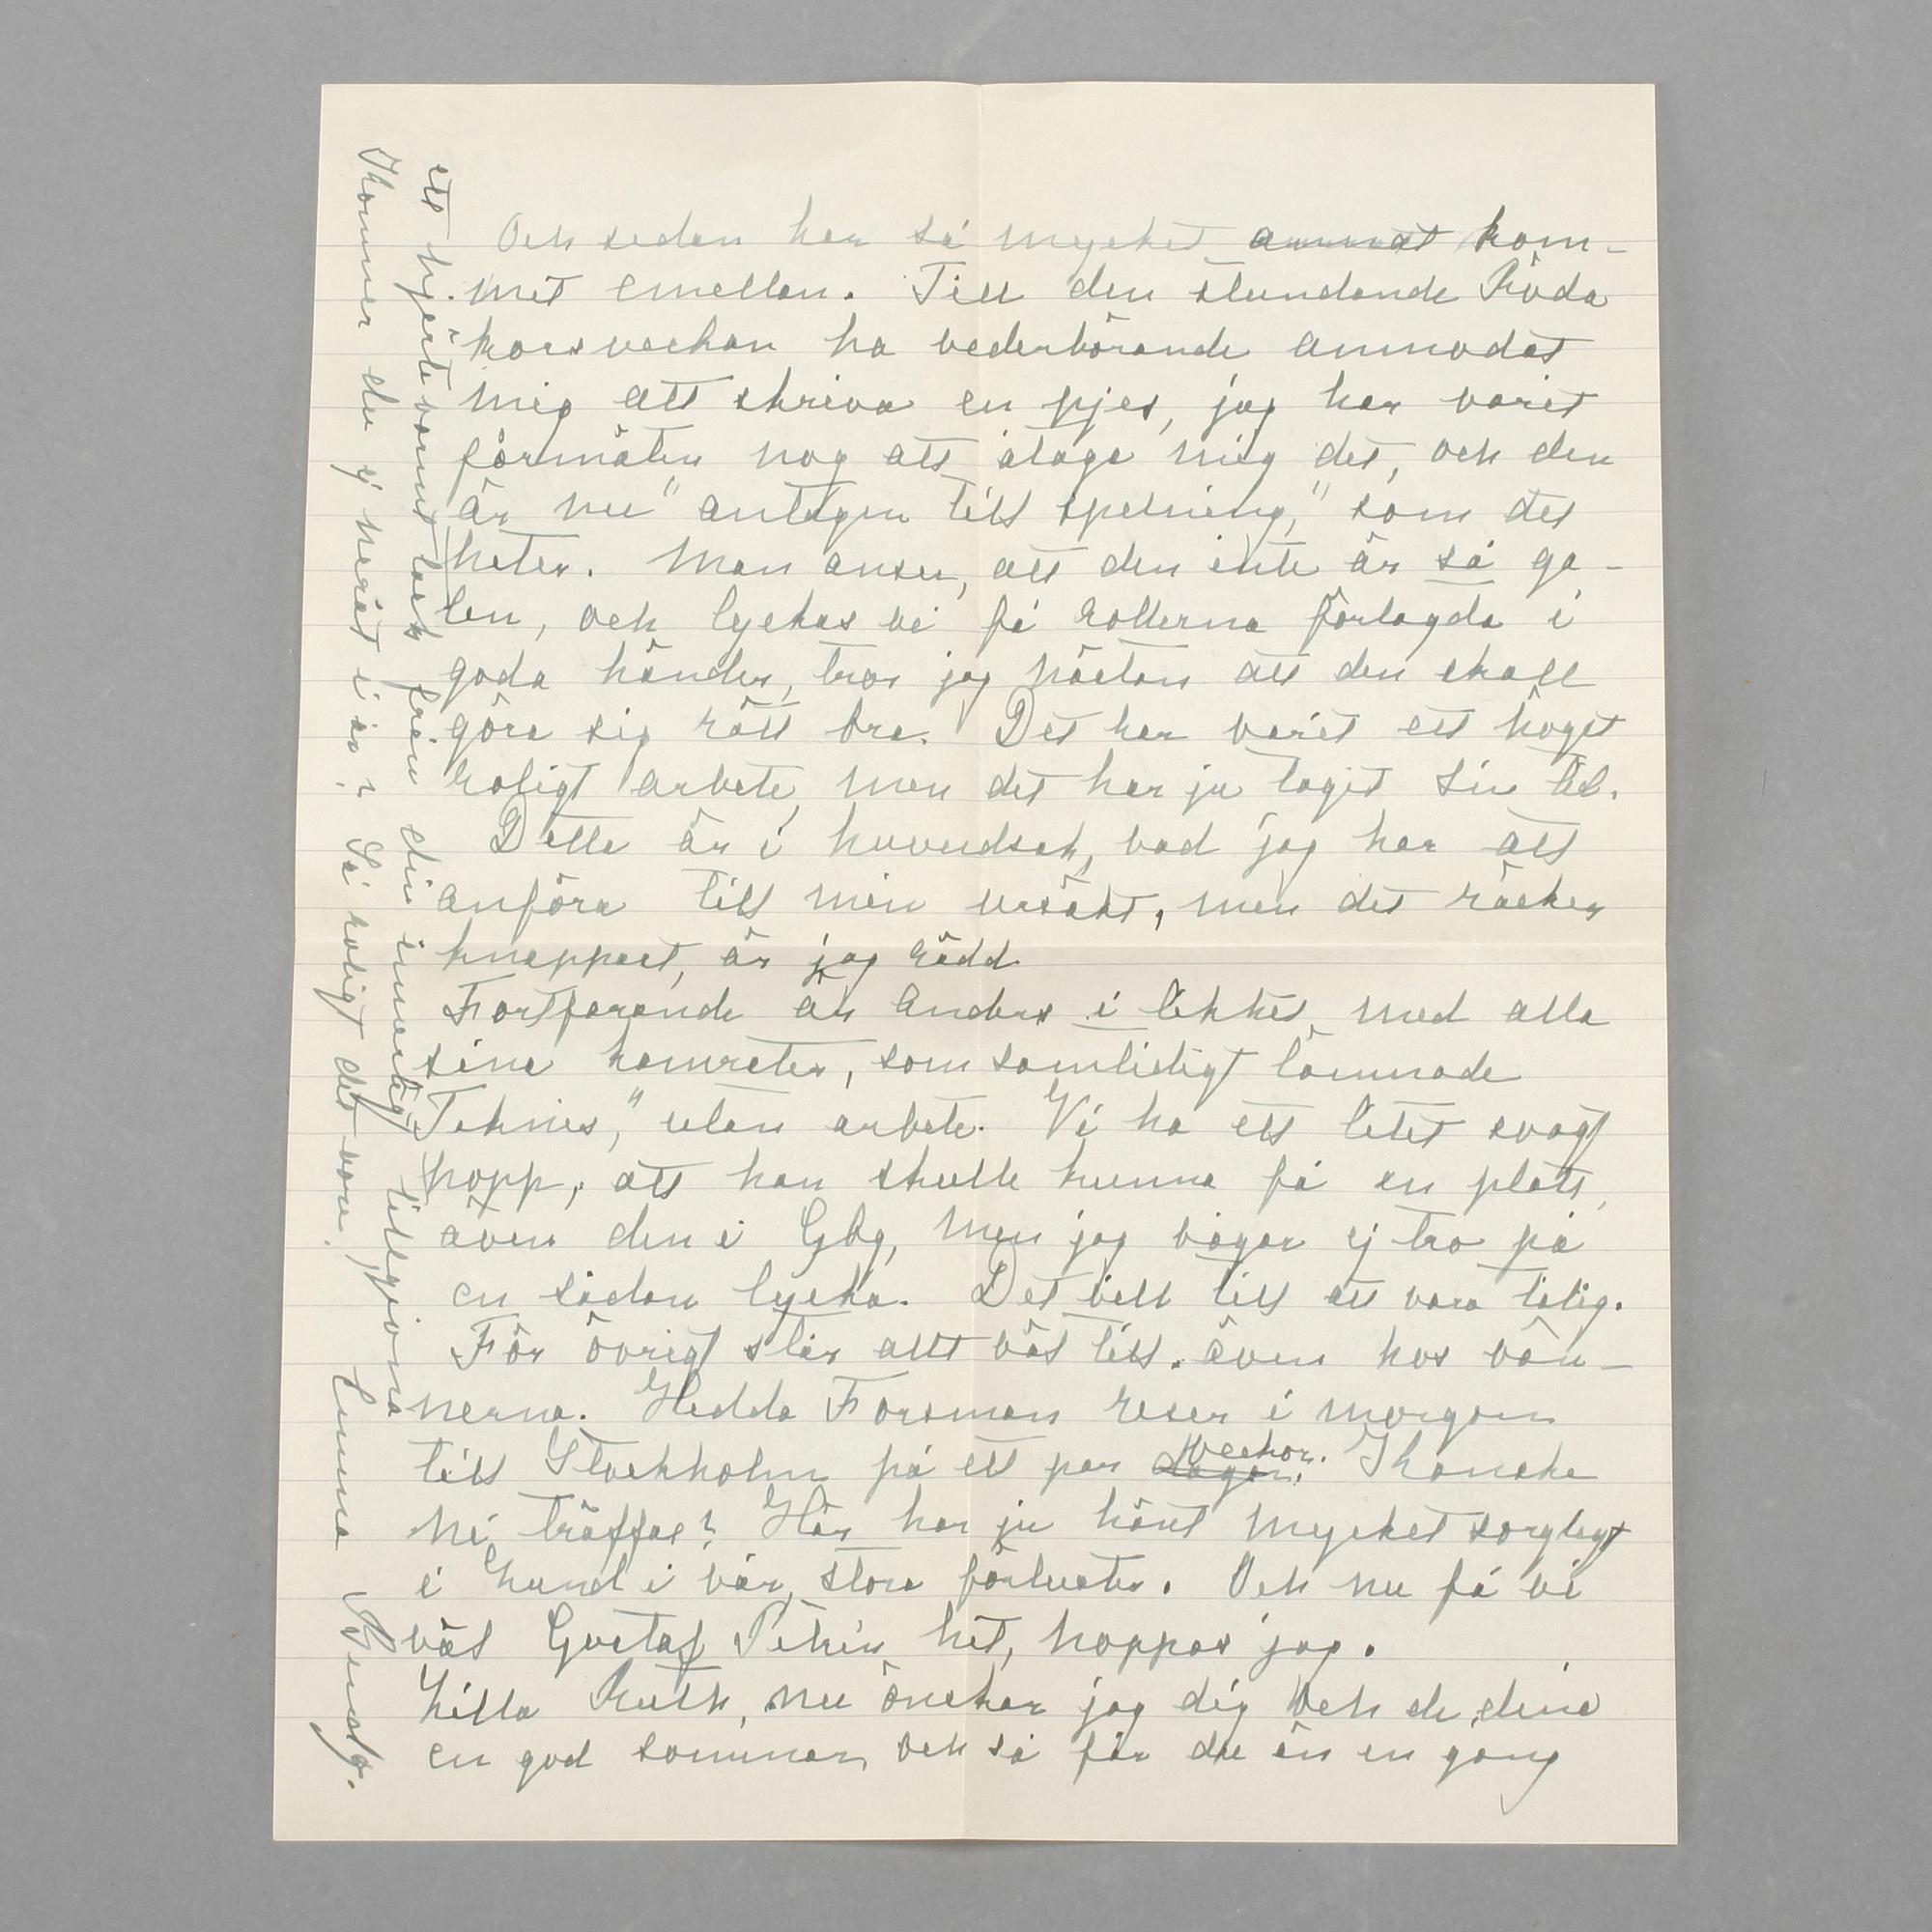 Och sedan har så mycket annat kom-
mit emellan. Till den stundande Röda
korsveckan ha vederbörande anmodat
mig att skriva en pjes, jag har varit
förmäten nog att åtaga mig det, och den
är nu "antagen till spelning," som det
heter. Man anser, att den inte är så ga-
len, och lyckas vi få rollerna förlagda i
goda händer, tror jag nästan att den skall
göra sig rätt bra. Det har varit ett högst
roligt arbete, men det har ju tagit sin tid.
Detta är i huvudsak, vad jag har att
anföra till min ursäkt, men det räcker
knappast, är jag rädd.
Fortfarande är Anders i likhet med alla
sina kamrater, som samtidigt lämnade
Teknis," utan arbete. Vi ha ett litet svagt
hopp, att han skulle kunna få en plats,
även den i Gbg, men jag vågar ej tro på
en sådan lycka. Det vill till att vara tålig.
För övrigt står allt väl till, även hos vän-
nerna. Hedda Forsman reser i morgon
till Stockholm på ett par dagar. veckor. Kanske
ni träffas? Här har ju hänt mycket sorgligt
i Lund i vår, stora förluster. Och nu få vi
väl Gustaf hit, hoppas jag.
Lilla Ruth, nu önskar jag dig och de dina
en god sommar, och så får du än en gång
ett hjärtevarmt tack från din innerligt tillgivna
Kommer du ej neråt i år? Så roligt det vore! Emma Bendz.